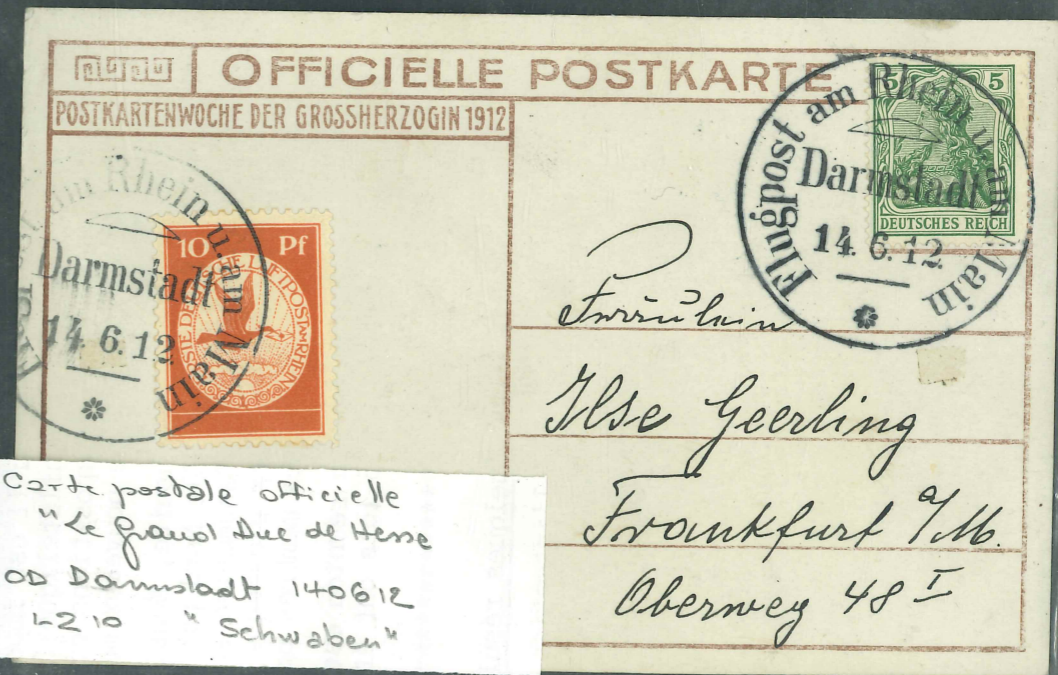 OFFICIELLE POSTKARTE
POSTKARTENWOCHE DER GROSSHERZOGIN 1912
Flugpost am Rhein u. am Main
Darmstadt
14.6.12
5
DEUTSCHES REICH
am Rhein u. am Main
Darmstadt
14.6.12
10 Pf
LUFTPOST
RHEIN
Fräulein
Ilse Geerling
Frankfurt a/M.
Oberweg 48 I
Carte postale officielle
"Le Grand Duc de Hesse
OD Darmstadt 140612
LZ 10 "Schwaben"